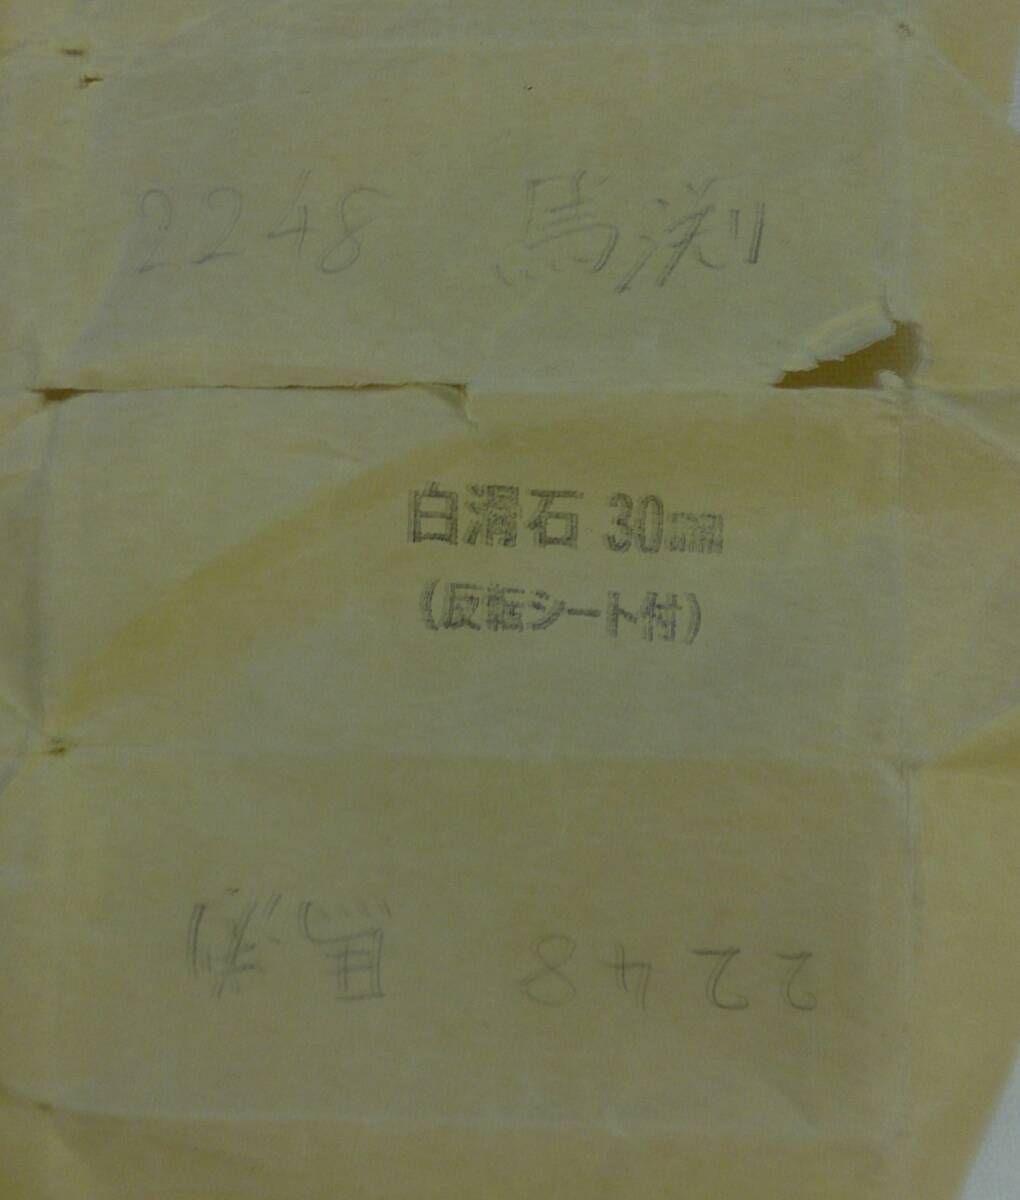 2248 馬渕
白滑石 30mm
(反転シート付)
2248 馬渕